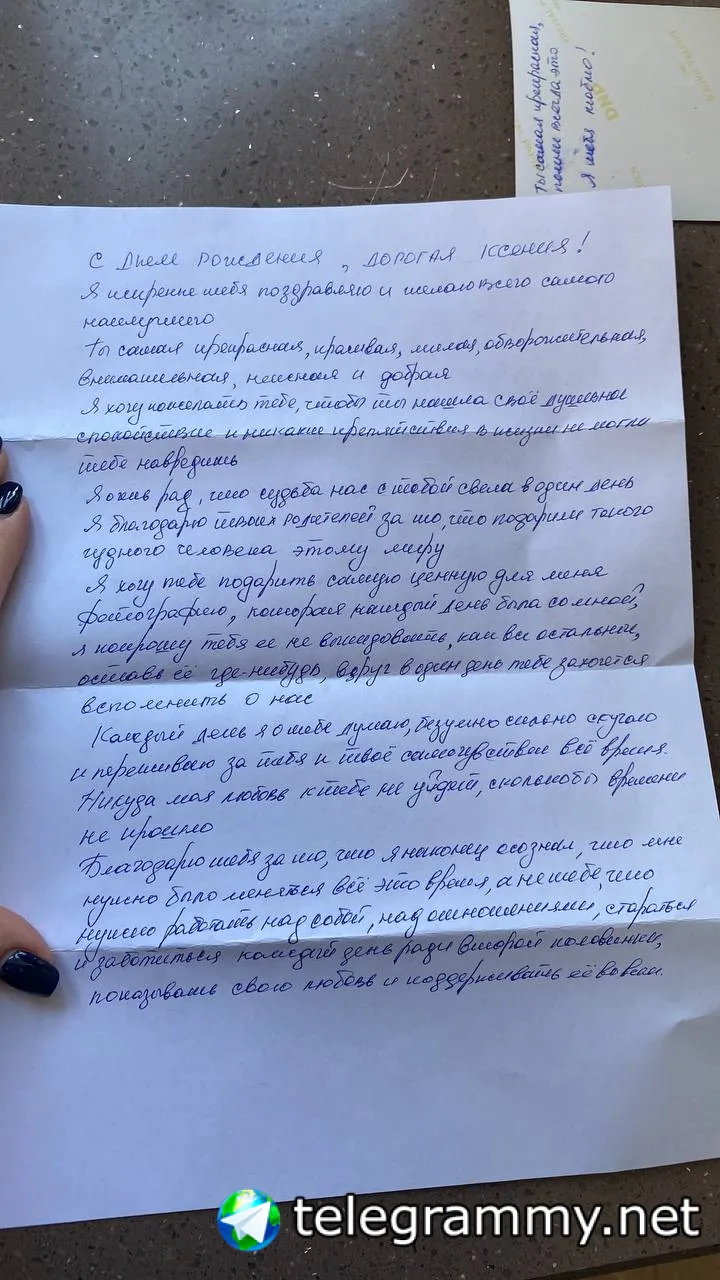 Ты самая прекрасная,
помни всегда это
Я тебя люблю!
С Днем рождения, дорогая Ксения!
Я искренне тебя поздравляю и желаю всего самого
наилучшего
Ты самая прекрасная, красивая, милая, обворожительная,
внимательная, нежная и добрая
Я хочу пожелать тебе, чтобы ты нашла своё душевное
спокойствие и никакие препятствия в жизни не могли
тебе навредить
Я очень рад, что судьба нас с тобой свела в один день
Я благодарю твоих родителей за то, что подарили такого
чудного человека этому миру
Я хочу тебе подарить самую ценную для меня
фотографию, которая каждый день была со мной,
я попрошу тебя ее не выкидывать, как все остальные,
оставь её где-нибудь, вдруг в один день тебе захочется
вспомнить о нас
Каждый день я о тебе думаю, безумно сильно скучаю
и переживаю за тебя и твоё самочувствие всё время.
Никуда моя любовь к тебе не уйдёт, сколько бы времени
не прошло
Благодарю тебя за то, что я наконец осознал, что мне
нужно было меняться всё это время, а не тебе, что
нужно работать над собой, над отношениями, стараться
и заботиться каждый день ради второй половинки,
показывать свою любовь и поддерживать её во всем.
telegrammy.net